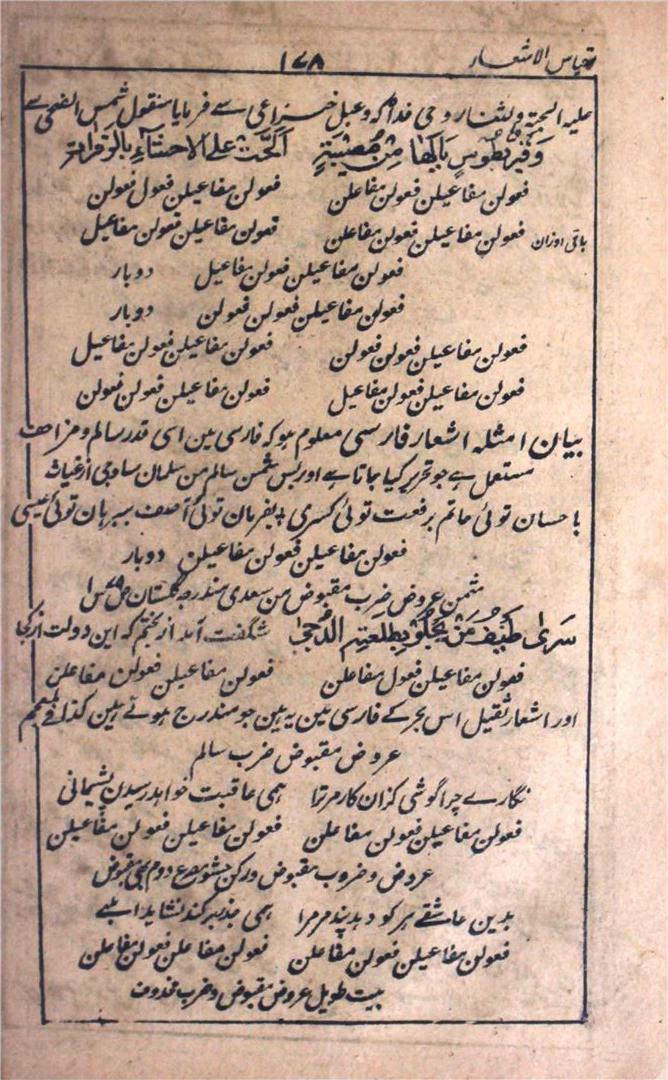 قیاس الاشعار ۱۷۸
علیہ التحیۃ والثنا روحی فداہ کہ دعبل خزاعی سے فرمایا منقول شمس الضحیٰ سے
وَقَبْرٌ بِطُوْسٍ یَا لَهَا مِنْ مُصِیْبَةٍ اَلَحَّتْ عَلَی الْاَحْشَاءِ بِالزَّفَرَاتِ
فعولن مفاعیلن فعولن مفاعلن فعولن مفاعیلن فعول فعولن
باقی اوزان فعولن مفاعیلن فعولن مفاعلن فعولن مفاعیلن فعولن مفاعیل
فعولن مفاعیلن فعولن مفاعیل دوبار
فعولن مفاعیلن فعولن فعولن دوبار
فعولن مفاعیلن فعولن فعولن فعولن مفاعیلن فعولن مفاعیل
فعولن مفاعیلن فعولن مفاعیل فعولن مفاعیلن فعولن فعولن
بیان امثلہ اشعار فارسی معلوم ہو کہ فارسی مین اسی قدر سالم و مزاحف
مستعمل ہے جو تحریر کیا جاتا ہے اور بس مثمن سالم من سلمان ساوجی از غیاث
باحسان توئی حاتم برفعت توئی کسری بفرمان توئی آصف ببرہان توئی عیسی
فعولن مفاعیلن فعولن مفاعیلن دوبار
مثمن عروض ضرب مقبوض من سعدی مندرجہ گلستان
سَرٰی طَیْفُ مَنْ یَجْلُوْ بِطَلْعَتِهِ الدُّجٰی شگفت آمد از بختم کہ این دولت از کجا
فعولن مفاعیلن فعول مفاعلن فعولن مفاعیلن فعولن مفاعلن
اور اشعار ثقیل اس بحر کے فارسی مین یہ ہین جو مندرج ہوئے ہین کذا فی المعجم
عروض مقبوض ضرب سالم
نگارے چرا گوشی کزان کار مر ترا ہمی عاقبت خواہد رسیدن پشیمانی
فعولن مفاعیلن فعولن مفاعلن فعولن مفاعیلن فعولن مفاعیلن
عروض و ضروب مقبوض ورکن حشو مصرع دوم بھی مقبوض
بدین عاشقے ہر کو دہد پند مر مرا ہمی
فعولن مفاعیلن فعولن مفاعلن فعولن مفاعلن فعولن مفاعلن
بیت طویل عروض مقبوض و ضرب محذوف